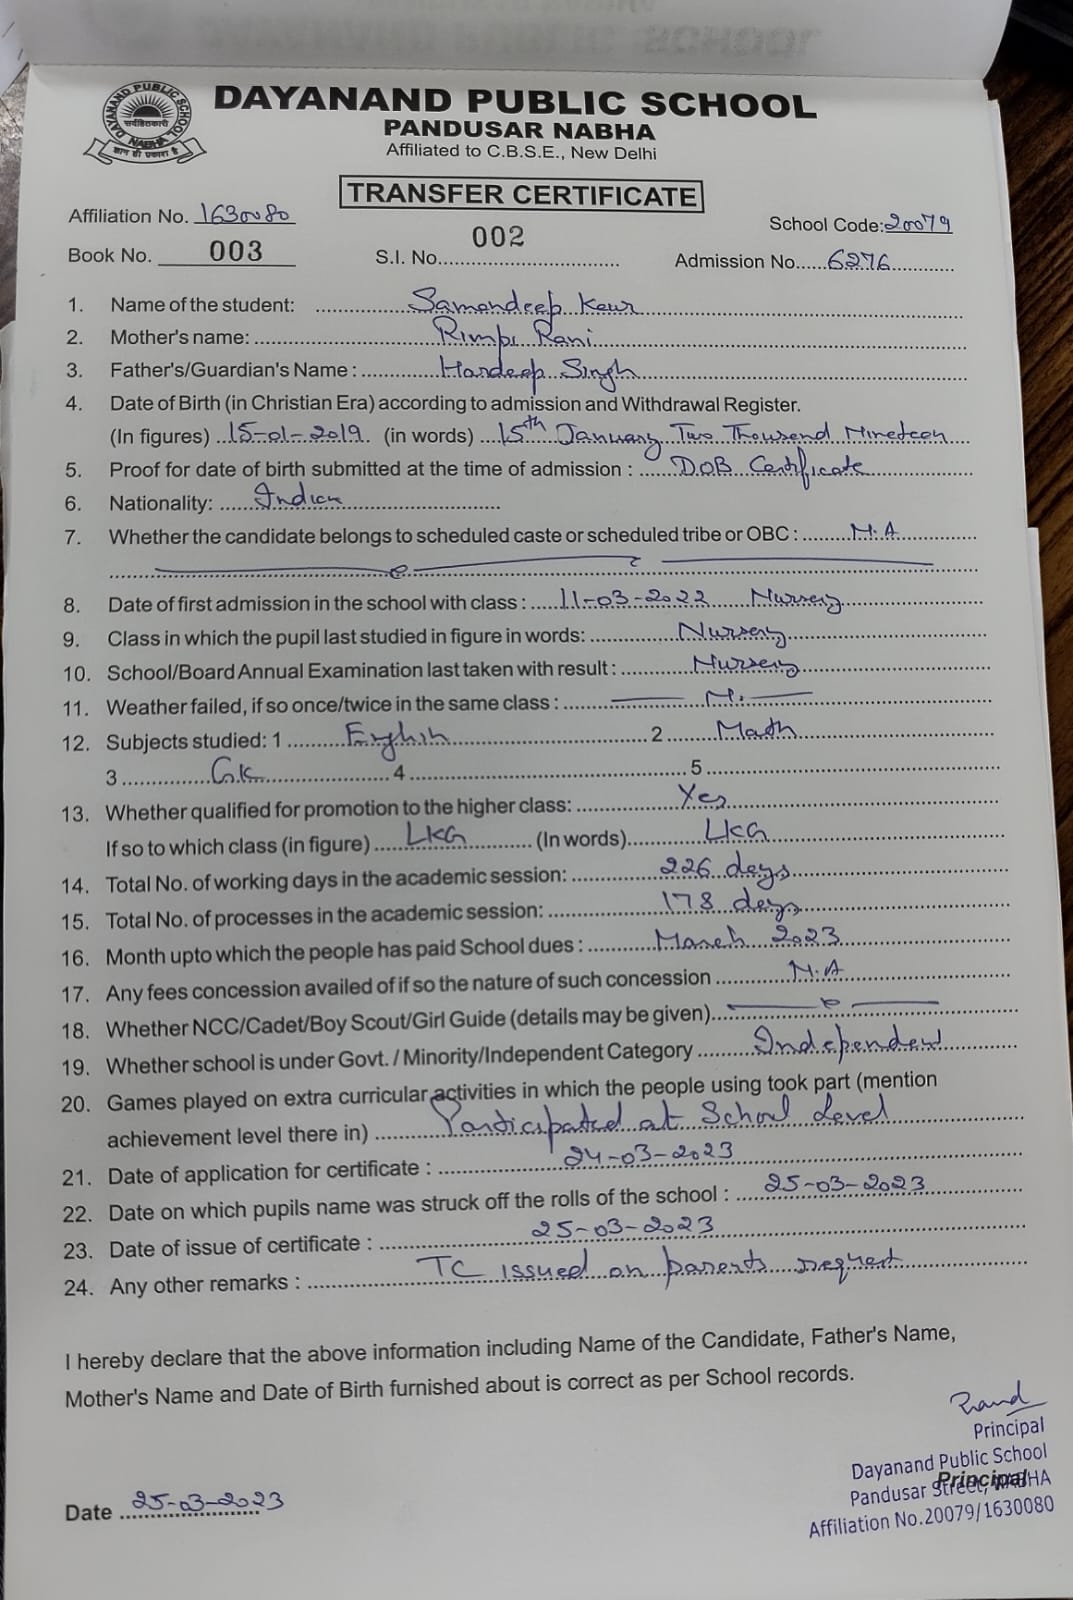 DAYANAND PUBLIC SCHOOL
PANDUSAR NABHA
Affiliated to C.B.S.E., New Delhi
DAYANAND PUBLIC SCHOOL
सर्वहितकारी
NABHA
ज्ञान ही प्रकाश है
TRANSFER CERTIFICATE
Affiliation No. 1630080
School Code: 20079
Book No. 003
S.I. No. 002
Admission No. 6276
1. Name of the student: Samandeep Kaur
2. Mother's name: Rimpi Rani
3. Father's/Guardian's Name : Hardeep Singh
4. Date of Birth (in Christian Era) according to admission and Withdrawal Register.
(In figures) 15-01-2019. (in words) 15th January Two Thousand Nineteen
5. Proof for date of birth submitted at the time of admission : D.O.B Certificate
6. Nationality: Indian
7. Whether the candidate belongs to scheduled caste or scheduled tribe or OBC : N.A
8. Date of first admission in the school with class : 11-03-2022 Nursery
9. Class in which the pupil last studied in figure in words: Nursery
10. School/Board Annual Examination last taken with result : Nursery
11. Weather failed, if so once/twice in the same class : N.
12. Subjects studied: 1 English 2 Math
3 G.K 4 5
13. Whether qualified for promotion to the higher class: Yes
If so to which class (in figure) LKG (In words) LKG
14. Total No. of working days in the academic session: 226 days
15. Total No. of processes in the academic session: 178 days
16. Month upto which the people has paid School dues : March 2023
17. Any fees concession availed of if so the nature of such concession N.A
18. Whether NCC/Cadet/Boy Scout/Girl Guide (details may be given)
19. Whether school is under Govt. / Minority/Independent Category Independent
20. Games played on extra curricular activities in which the people using took part (mention
achievement level there in) Participated at School Level
21. Date of application for certificate : 24-03-2023
22. Date on which pupils name was struck off the rolls of the school : 25-03-2023
23. Date of issue of certificate : 25-03-2023
24. Any other remarks : TC issued on parents request
I hereby declare that the above information including Name of the Candidate, Father's Name,
Mother's Name and Date of Birth furnished about is correct as per School records.
Principal
Dayanand Public School
Pandusar Street, NABHA
Principal
Affiliation No.20079/1630080
Date 25-03-2023